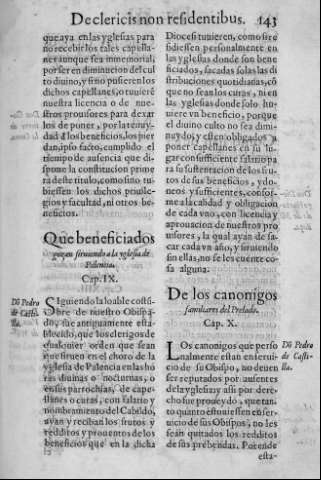 De clericis non residentibus. 143
que aya en las yglesias para
no recebir los tales capella-
nes aunque sea inmemorial,
por ser en diminucion del cul
to diuino, y si no pusieren los
dichos capellanes, o tuuierē
nuestra licencia o de nue-
stros prouisores para dexar
los de poner, por la tenuy-
dad d̄ los beneficios, los pier
dan, ipso facto, cumplido el
tiempo de ausencia que dis-
pone la constitucion prime
ra deste titulo, como sino tu-
biessen los dichos preuile-
gios y facultad, ni otros be-
neficios.
Que beneficiados
gozan siruiendo a la yglesia de
Palencia.
Cap. IX.
Dō Pedro
de Casti-
lla.
Siguiendo la loable costū-
bre de nuestro Obispa-
do, fue antiguamente esta-
blecido, que los clerigos de
qualquier orden que sean
que siruen en el choro de la
yglesia de Palencia en las ho
ras diuinas o nocturnas, o
en sus parrochias, de cape-
llanes o curas, con salario y
nombramiento del Cabildo,
ayan y reciban los frutos y
redditos y prouentos de los
beneficios que en la dicha
Diocesi tuuieren, como si re
sidiessen personalmente en
las yglesias donde son bene
ficiados, sacadas solas las di
stribuciones quotidianas, cō
que no sean los curas, ni en
las yglesias donde solo hu-
uiere vn beneficio, porque
el diuino culto no sea dimi
nuydo, y esten obligados a
poner capellanes en su lu-
gar con sufficiente salario pa
ra su sustentacion de los fru
tos de sus beneficios, ydo-
neos y sufficientes, confor-
me a la calidad y obligacion
de cada vno, con licencia y
aprouacion de nuestros pro
uisores, la qual ayan de sa-
car cada vn año, y siruiendo
sin ellas, no se les cuente co-
sa alguna.
De los canonigos
familiares del Prelado.
Cap. X.
Los canonigos que perso
nalmente estan en serui-
cio de su Obispo, no deuen
ser reputados por ausentes
de la yglesia: y assi por dere-
cho fue proueydo, que tan-
to quanto estuuiessen en ser-
uicio de sus Obispos, no les
sean quitados los redditos
de sus prebendas. Por ende
esta-
Dō Pedro
de Casti-
lla.